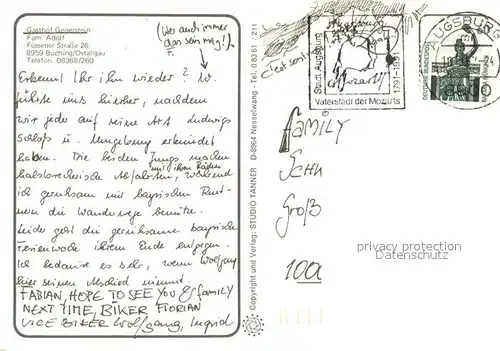 Gasthof Geiselstein
Fam. Adolf
Füssener Straße 26
8959 Buching/Ostallgäu
Telefon: 08368/260
(Wer auch immer
das sein mag!)
Erkennt Ihr ihn wieder? W.
führte uns hierher, nachdem
wir jede auf seine Art Ludwigs
Schloß u. Umgebung erkundet
haben. Die beiden Jungs machen
mit ihren Rädern
halsbrecherische Abfahrten, während
ich geruhsam mit bayrischen Rent-
nern die Wanderwege benutze.
Leider geht die geruhsame bayrische
Ferienwoche ihrem Ende entgegen.
Ich bedaure es sehr, wenn Wolfgang
hier seinen Abschied nimmt.
FABIAN, HOPE TO SEE YOU & family
NEXT TIME, BIKER FLORIAN
VICE BIKER Wolfgang, Ingrid
Copyright und Verlag: STUDIO TANNER D-8964 Nesselwang - Tel. 0 83 61 / 211
C'est
Stadt Augsburg
Mozart
1791-1991
Vaterstadt der Mozarts
AUGSBURG
DEUTSCHE BUNDESPOST
FAMILY
Groß